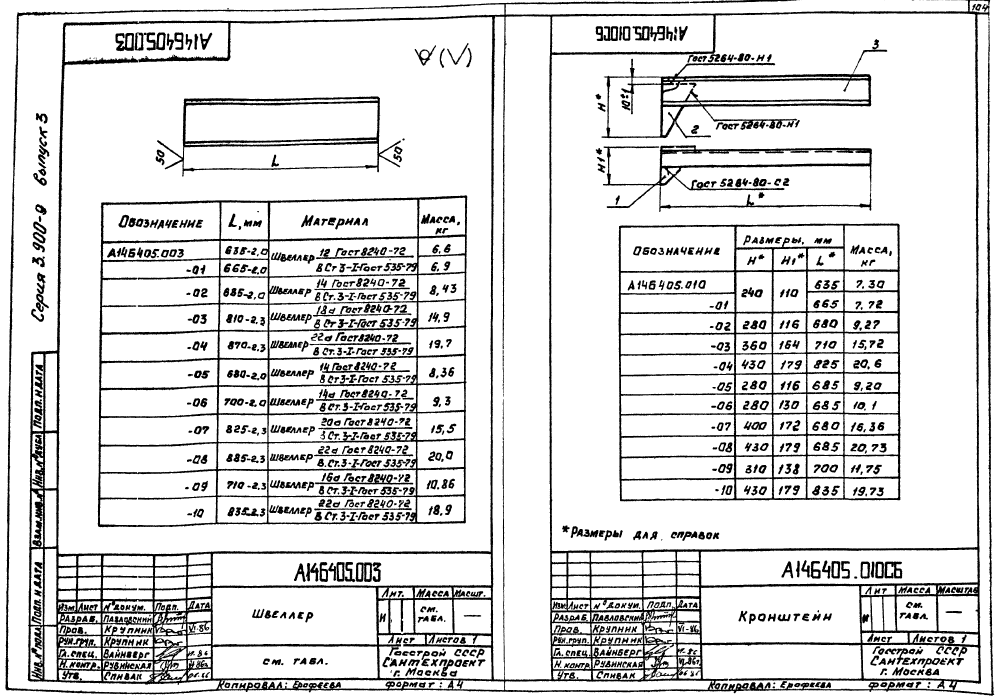 104
Серия 3.900-9 выпуск 3
А14Б405.003
(√)
50
L
50
Обозначение L, мм Материал Масса, кг
А14Б405.003 635-2,0 Швеллер 12 Гост 8240-72 / В Ст 3-I-Гост 535-79 6,6
-01 665-2,0 6,9
-02 685-2,0 Швеллер 14 Гост 8240-72 / В Ст. 3-I-Гост 535-79 8,43
-03 810-2,3 Швеллер 18а Гост 8240-72 / В Ст 3-I-Гост 535-79 14,9
-04 870-2,3 Швеллер 22а Гост 8240-72 / В Ст. 3-I-Гост 535-79 19,7
-05 680-2,0 Швеллер 14 Гост 8240-72 / В Ст. 3-I-Гост 535-79 8,36
-06 700-2,0 Швеллер 14а Гост 8240-72 / В Ст. 3-I-Гост 535-79 9,3
-07 825-2,3 Швеллер 20а Гост 8240-72 / В Ст. 3-I-Гост 535-79 15,5
-08 885-2,3 Швеллер 22а Гост 8240-72 / В. Ст. 3-I-Гост 535-79 20,0
-09 710-2,3 Швеллер 16а Гост 8240-72 / В Ст. 3-I-Гост 535-79 10,86
-10 835-2,3 Швеллер 22а Гост 8240-72 / В Ст. 3-I-Гост 535-79 18,9
Инв. № подл. Подп. и дата Взам. инв. № Инв. № дубл. Подп. и дата
А14Б405.003
Швеллер
Лит. Масса Масшт.
И см. табл.
Лист Листов 1
Изм. Лист № докум. Подп. Дата
Разраб. Павловский
Пров. Крупник VI-86
Рук. груп. Крупник
Гл. спец. Вайнберг
Н. контр. Рувинская
Утв. Спивак
см. табл.
Госстрой СССР
Сантехпроект
г. Москва
Копировал: Ерофеева формат: А4
А14Б405.010СБ
Гост 5264-80-Н1
3
Н*
10±1
Гост 5264-80-Н1
2
Н1*
Гост 5264-80-С2
1
L*
Обозначение Размеры, мм Масса, кг
Н* Н1* L*
А14Б405.010 240 110 635 7.30
-01 665 7.72
-02 280 116 680 9,27
-03 360 164 710 15,72
-04 430 179 825 20,6
-05 280 116 685 9,20
-06 280 130 685 10,1
-07 400 172 680 16,36
-08 430 179 685 20,73
-09 310 138 700 11,75
-10 430 179 835 19.73
* Размеры для справок
А14Б405.010СБ
Кронштейн
Лит Масса Масштаб
И см. табл.
Лист Листов 1
Изм. Лист № докум. Подп. Дата
Разраб. Павловский
Пров. Крупник VI-86
Рук. груп. Крупник
Гл. спец. Вайнберг
Н. контр. Рувинская
Утв. Спивак
Госстрой СССР
Сантехпроект
г. Москва
Копировал: Ерофеева формат: А4